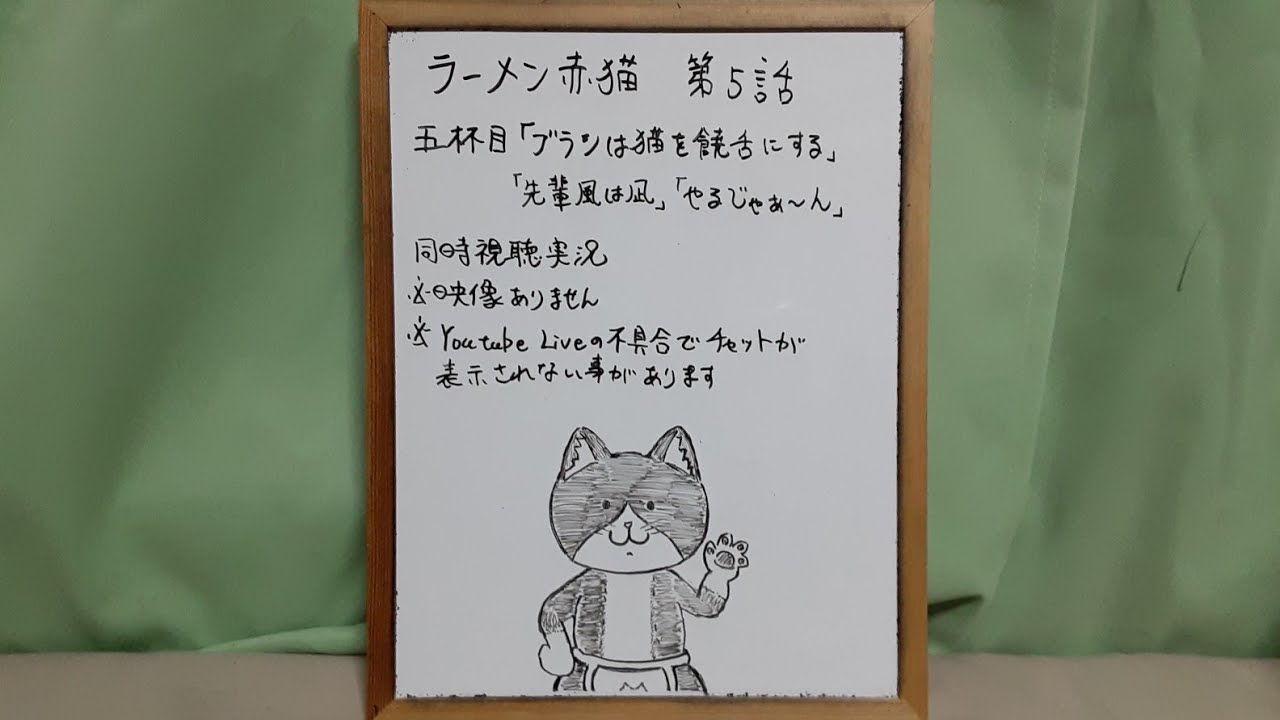 ラーメン赤猫 第5話
五杯目「ブランは猫を饒舌にする」
「先輩風は凪」「やるじゃぁ〜ん」
同時視聴実況
※映像ありません
※Youtube Liveの不具合でチャットが
表示されない事があります